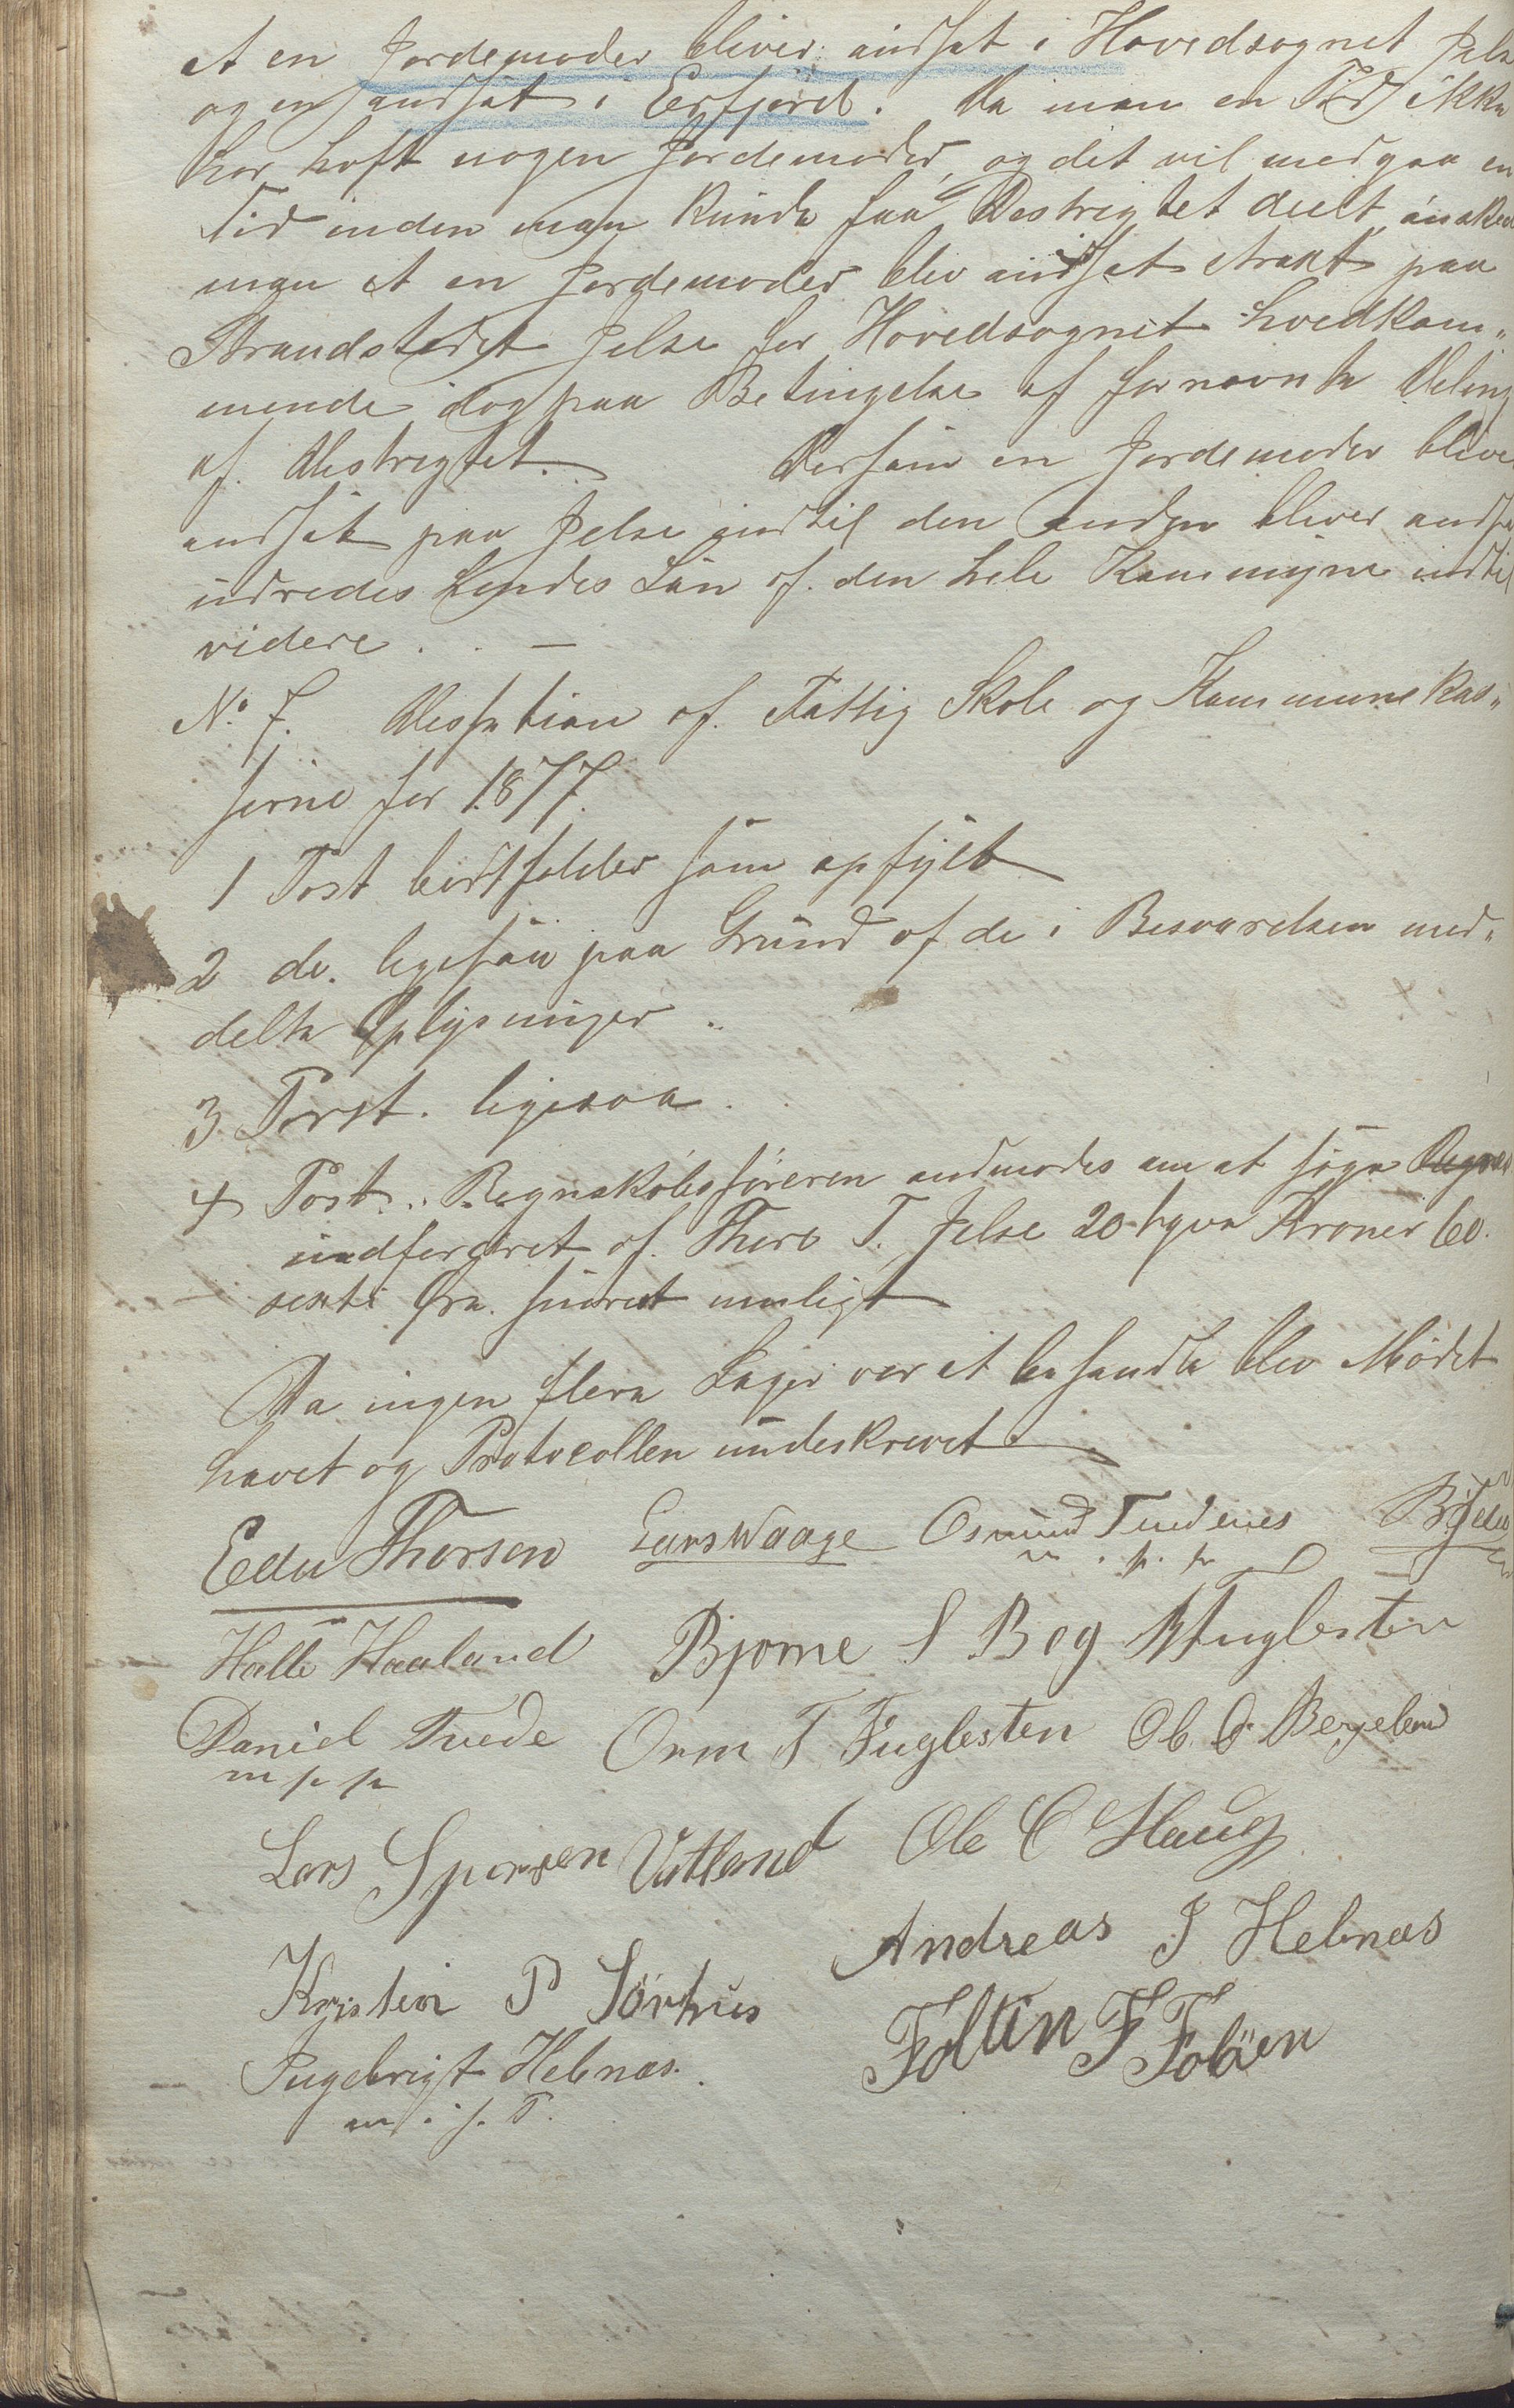 at en Jordemoder bliver andsat i Hovedsognet Jelse
og en andsat i Erfjord. Da man en Tid ikke
har haft nogen Jordemoder, og det vil medgaa en
Tid inden man kunde faa Destrigtet deelt, ønsker
man at en Jordemoder blev andsat strakt paa
Strandstedet Jelse for Hovedsognet hvedkom„
mende dog paa Betingelse af fornævnte Deling
af Destrigtet. Dersom en Jordemoder bliver
andsat paa Jelse indtil den anden bliver andsat
udredes hendes Løn af den hele Kommune indtil
videre . . —
No. 7. Desision af Fattig Skole og Kommunekas„
serne for 1877.
1 Post bortfalder som opfyldt
2 do. ligesaa paa Grund af de i Besvarelsen med„
delte Oplysninger ..
3 Post. ligesaa .
4 Post. Regnskabsføreren andmodes om at søge
indfordret af Thore T. Jelse 20 tyve Kroner 60.
sexti Øre snarest muligt
Da ingen flere Sager var at behandle blev Mødet
hævet og Protocollen undeskrevet
Edu Thorsen Lars Waage Osmund Tuedenes
m . p. p
Halle Haaland Bjorne S Beg Fuglesten
Daniel Tuede Orm T Fuglesten Ol. O. Bergeland
m p p
Lars Sjursen Vatland Ole C Haug
Andreas J Hebnæs
Kristen P Sørhus
Foltin F Foløen
Ingebrigt Hebnæs.
m . i . p. P.